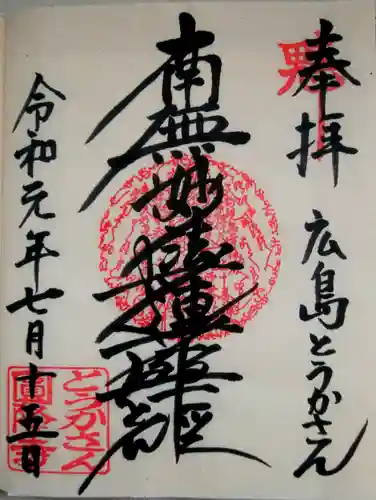 奉拝 広島とうかさん
南無妙法蓮華經
令和元年七月十五日
とうかさん
圓隆寺